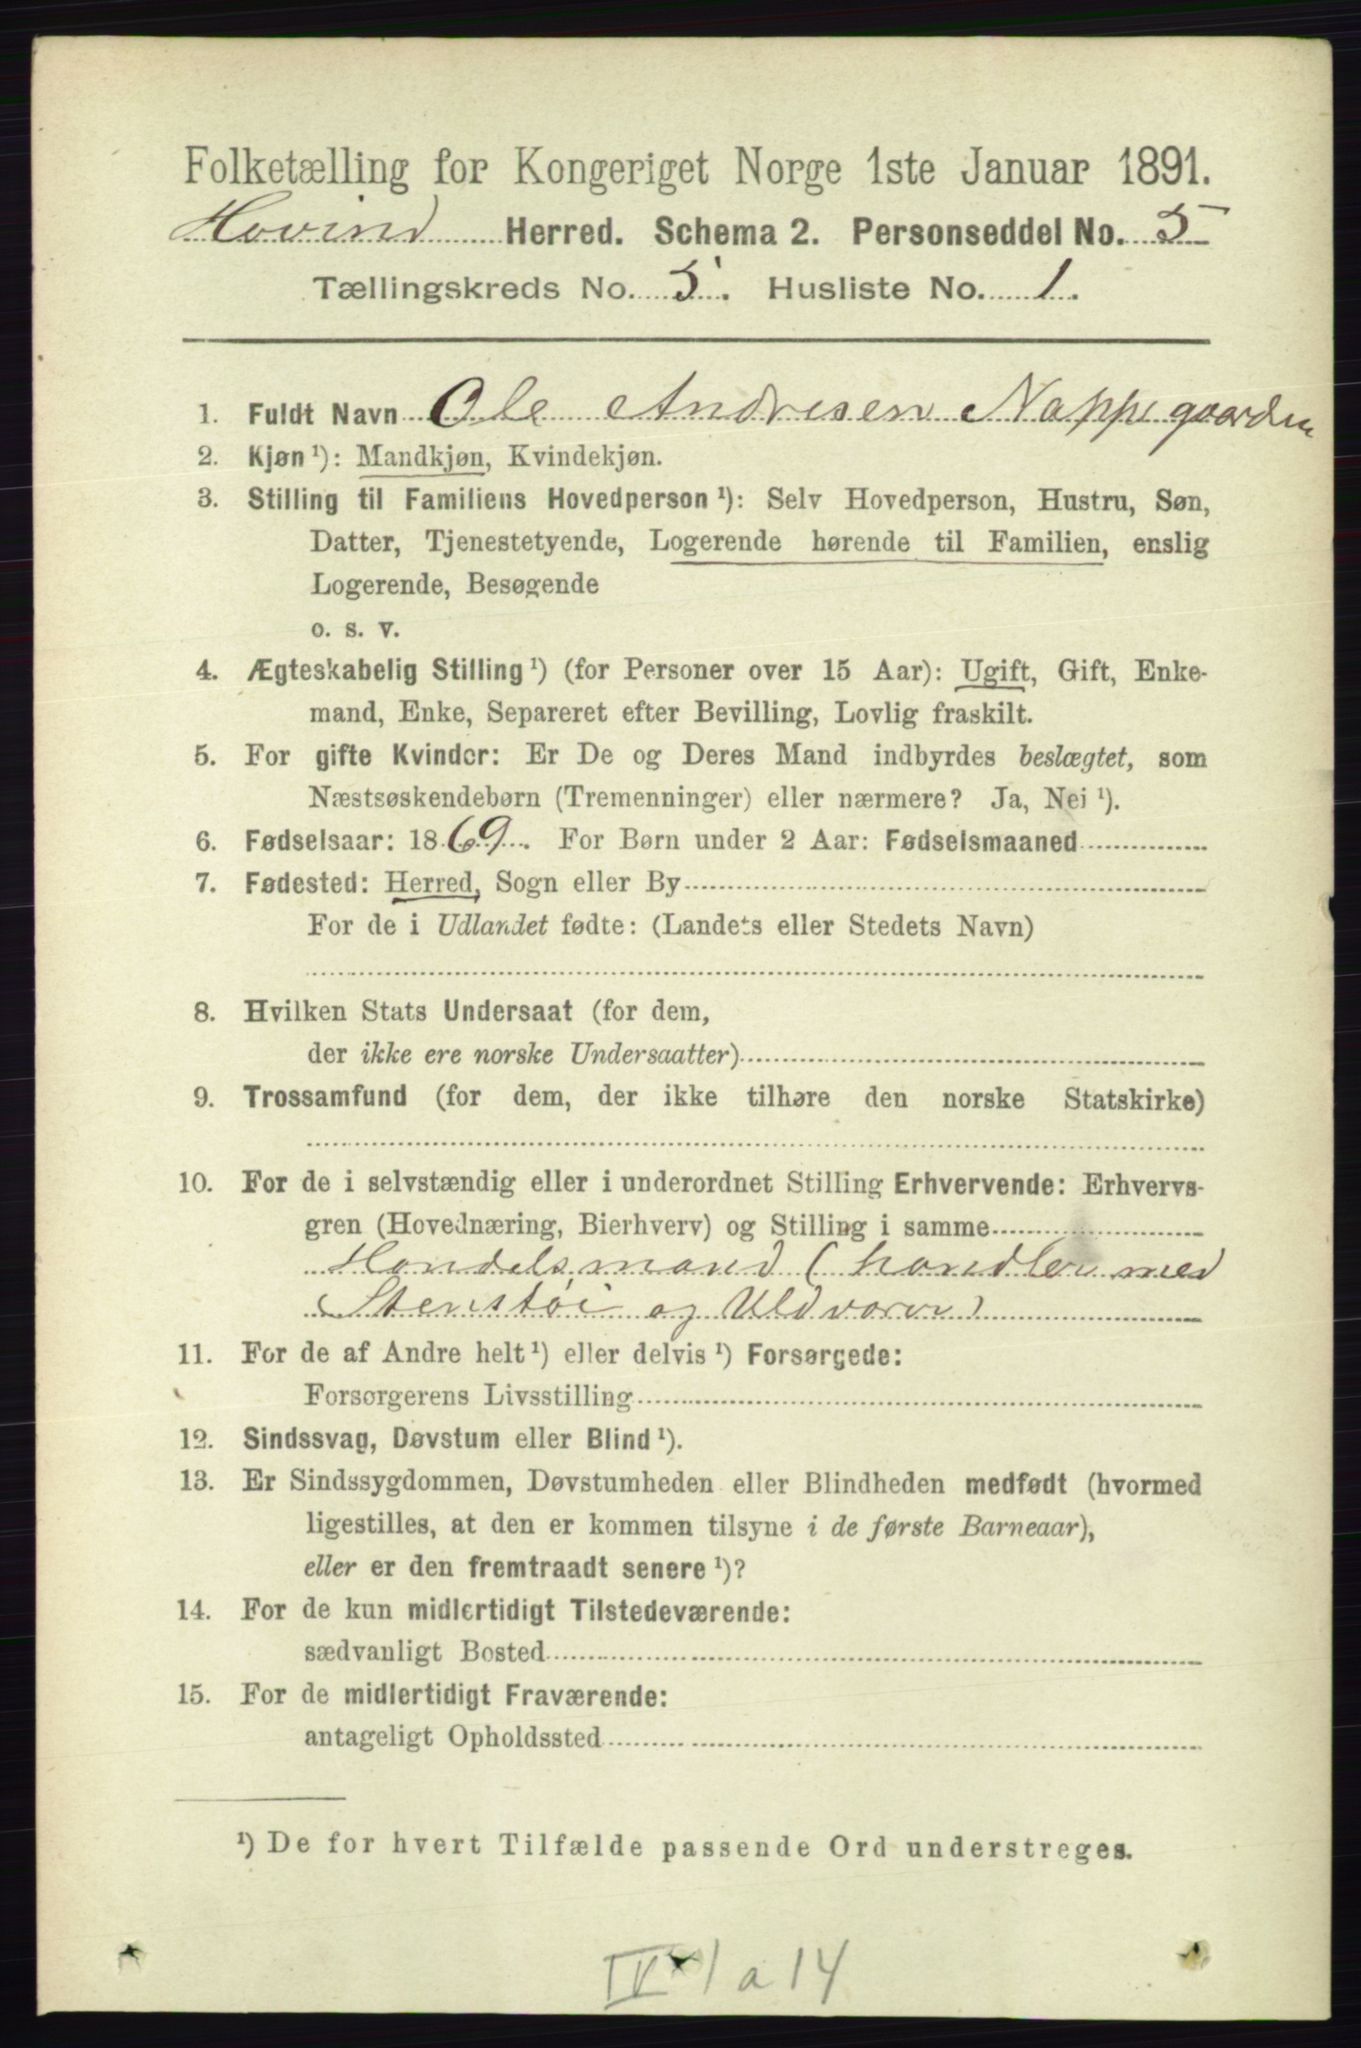 Folketælling for Kongeriget Norge 1ste Januar 1891.
Hovind Herred. Schema 2. Personseddel No. 5
Tællingskreds No. 5. Husliste No. 1.
1. Fuldt Navn Ole Andresen Nappegaarden
2. Kjøn ¹): Mandkjøn, Kvindekjøn.
3. Stilling til Familiens Hovedperson ¹): Selv Hovedperson, Hustru, Søn,
Datter, Tjenestetyende, Logerende hørende til Familien, enslig
Logerende, Besøgende
o. s. v.
4. Ægteskabelig Stilling ¹) (for Personer over 15 Aar): Ugift, Gift, Enke-
mand, Enke, Separeret efter Bevilling, Lovlig fraskilt.
5. For gifte Kvinder: Er De og Deres Mand indbyrdes beslægtet, som
Næstsøskendebørn (Tremenninger) eller nærmere? Ja, Nei ¹).
6. Fødselsaar: 1869. For Børn under 2 Aar: Fødselsmaaned
7. Fødested: Herred, Sogn eller By
For de i Udlandet fødte: (Landets eller Stedets Navn)
8. Hvilken Stats Undersaat (for dem,
der ikke ere norske Undersaatter)
9. Trossamfund (for dem, der ikke tilhøre den norske Statskirke)
10. For de i selvstændig eller i underordnet Stilling Erhvervende: Erhvervs-
gren (Hovednæring, Bierhverv) og Stilling i samme
Handelsmand (handler med
(Stenstøi og Uldvarer)
11. For de af Andre helt ¹) eller delvis ¹) Forsørgede:
Forsørgerens Livsstilling
12. Sindssvag, Døvstum eller Blind ¹).
13. Er Sindssygdommen, Døvstumheden eller Blindheden medfødt (hvormed
ligestilles, at den er kommen tilsyne i de første Barneaar),
eller er den fremtraadt senere ¹)?
14. For de kun midlertidigt Tilstedeværende:
sædvanligt Bosted
15. For de midlertidigt Fraværende:
antageligt Opholdssted
¹) De for hvert Tilfælde passende Ord understreges.
IV 1 a 14